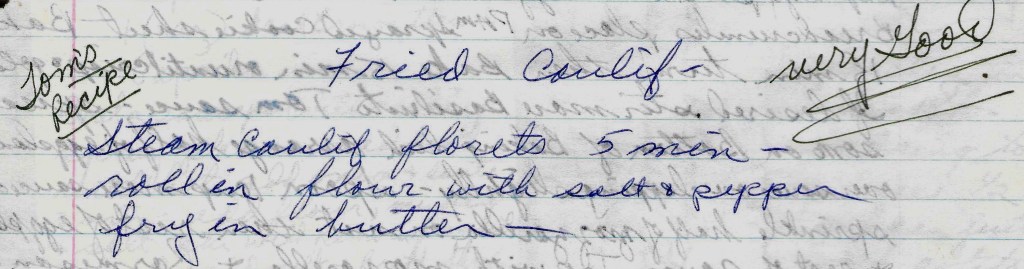 Tom's
Recipe
Fried Caulif-
very Good
Steam Caulif florets 5 min -
roll in flour with salt & pepper
fry in butter —